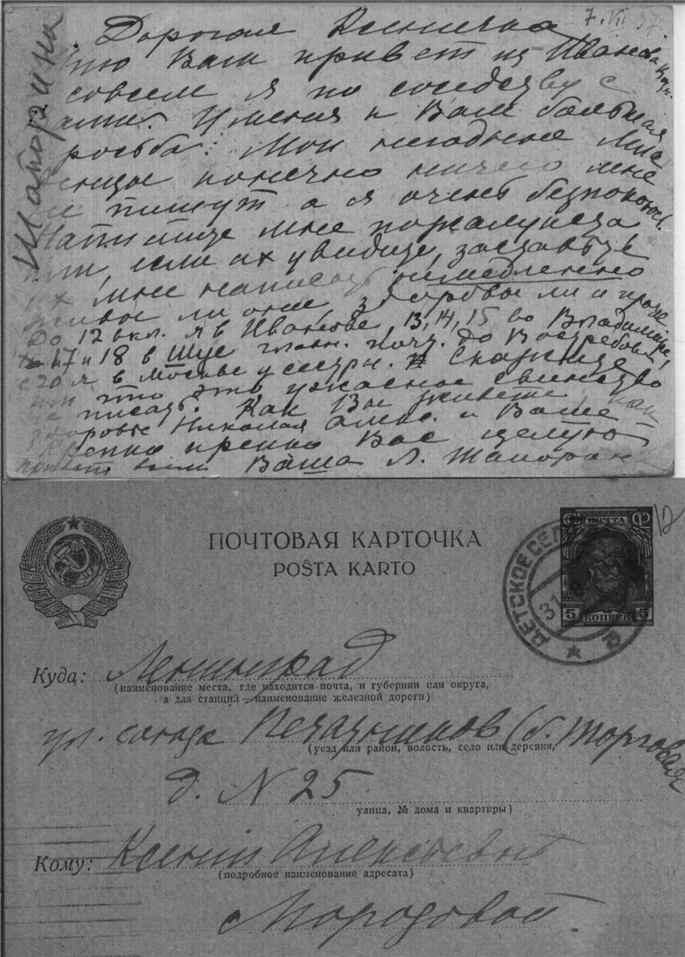 Шапорина
7.VII 37
Дорогая Ксеничка
Шлю Вам привет из Иванова
совсем я по соседству с
Вами. У меня к Вам большая
просьба: Мои негодные
конечно ничего мне
не пишут а я очень безпокоюсь.
Напишите мне пожалуйста,
или, если их увидите, заставьте
их мне написать немедленно
живы ли они, здоровы ли и проч.
До 12 вкл. я в Иванове, 13, 14, 15 во Владимире,
17 и 18 в Шуе главн. почт. до востребов.,
с 20 я в Москве у сестры. Скажите
им что это ужасное свинство
не писать. Как Вы живете, как
здоровье Николая Алекс. и Ваше
Крепко крепко Вас целую
привет Ваша Л. Шапорин
ПОЧТОВАЯ КАРТОЧКА
POŜTA KARTO
ДЕТСКОЕ СЕЛО
31
ПОЧТА
5 КОПЕЕК 5
Куда: Ленинград
(наименование места, где находится почта, и губернии или округа,
а для станций—наименование железной дороги)
ул. союза Печатников (б. Торговая
(уезд или район, волость, село или деревня,
д. N 25
улица, № дома и квартиры)
Кому: Ксении Алексеевне
(подробное наименование адресата)
Мородовой